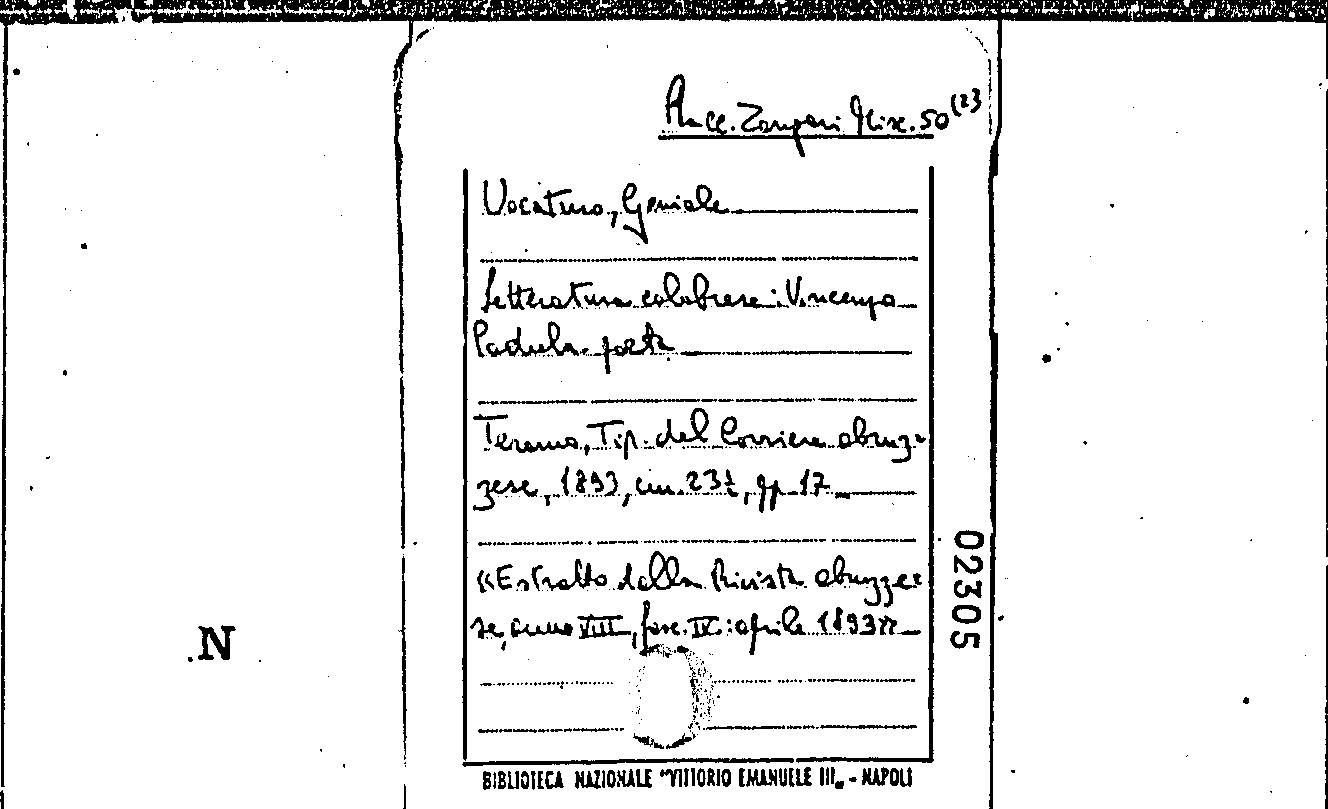 Racc. Zangari Misc. 50 (23
Vocaturo, Geniale
Letteratura calabrese: Vincenzo
Padula poeta
Teramo, Tip. del Corriere abruz=
zese, 1893, cm. 23½, pp. 17
«Estratto dalla Rivista abruzze=
se, anno VIII, fasc. IV: aprile 1893»
02305
N
BIBLIOTECA NAZIONALE "VITTORIO EMANUELE III„ - NAPOLI